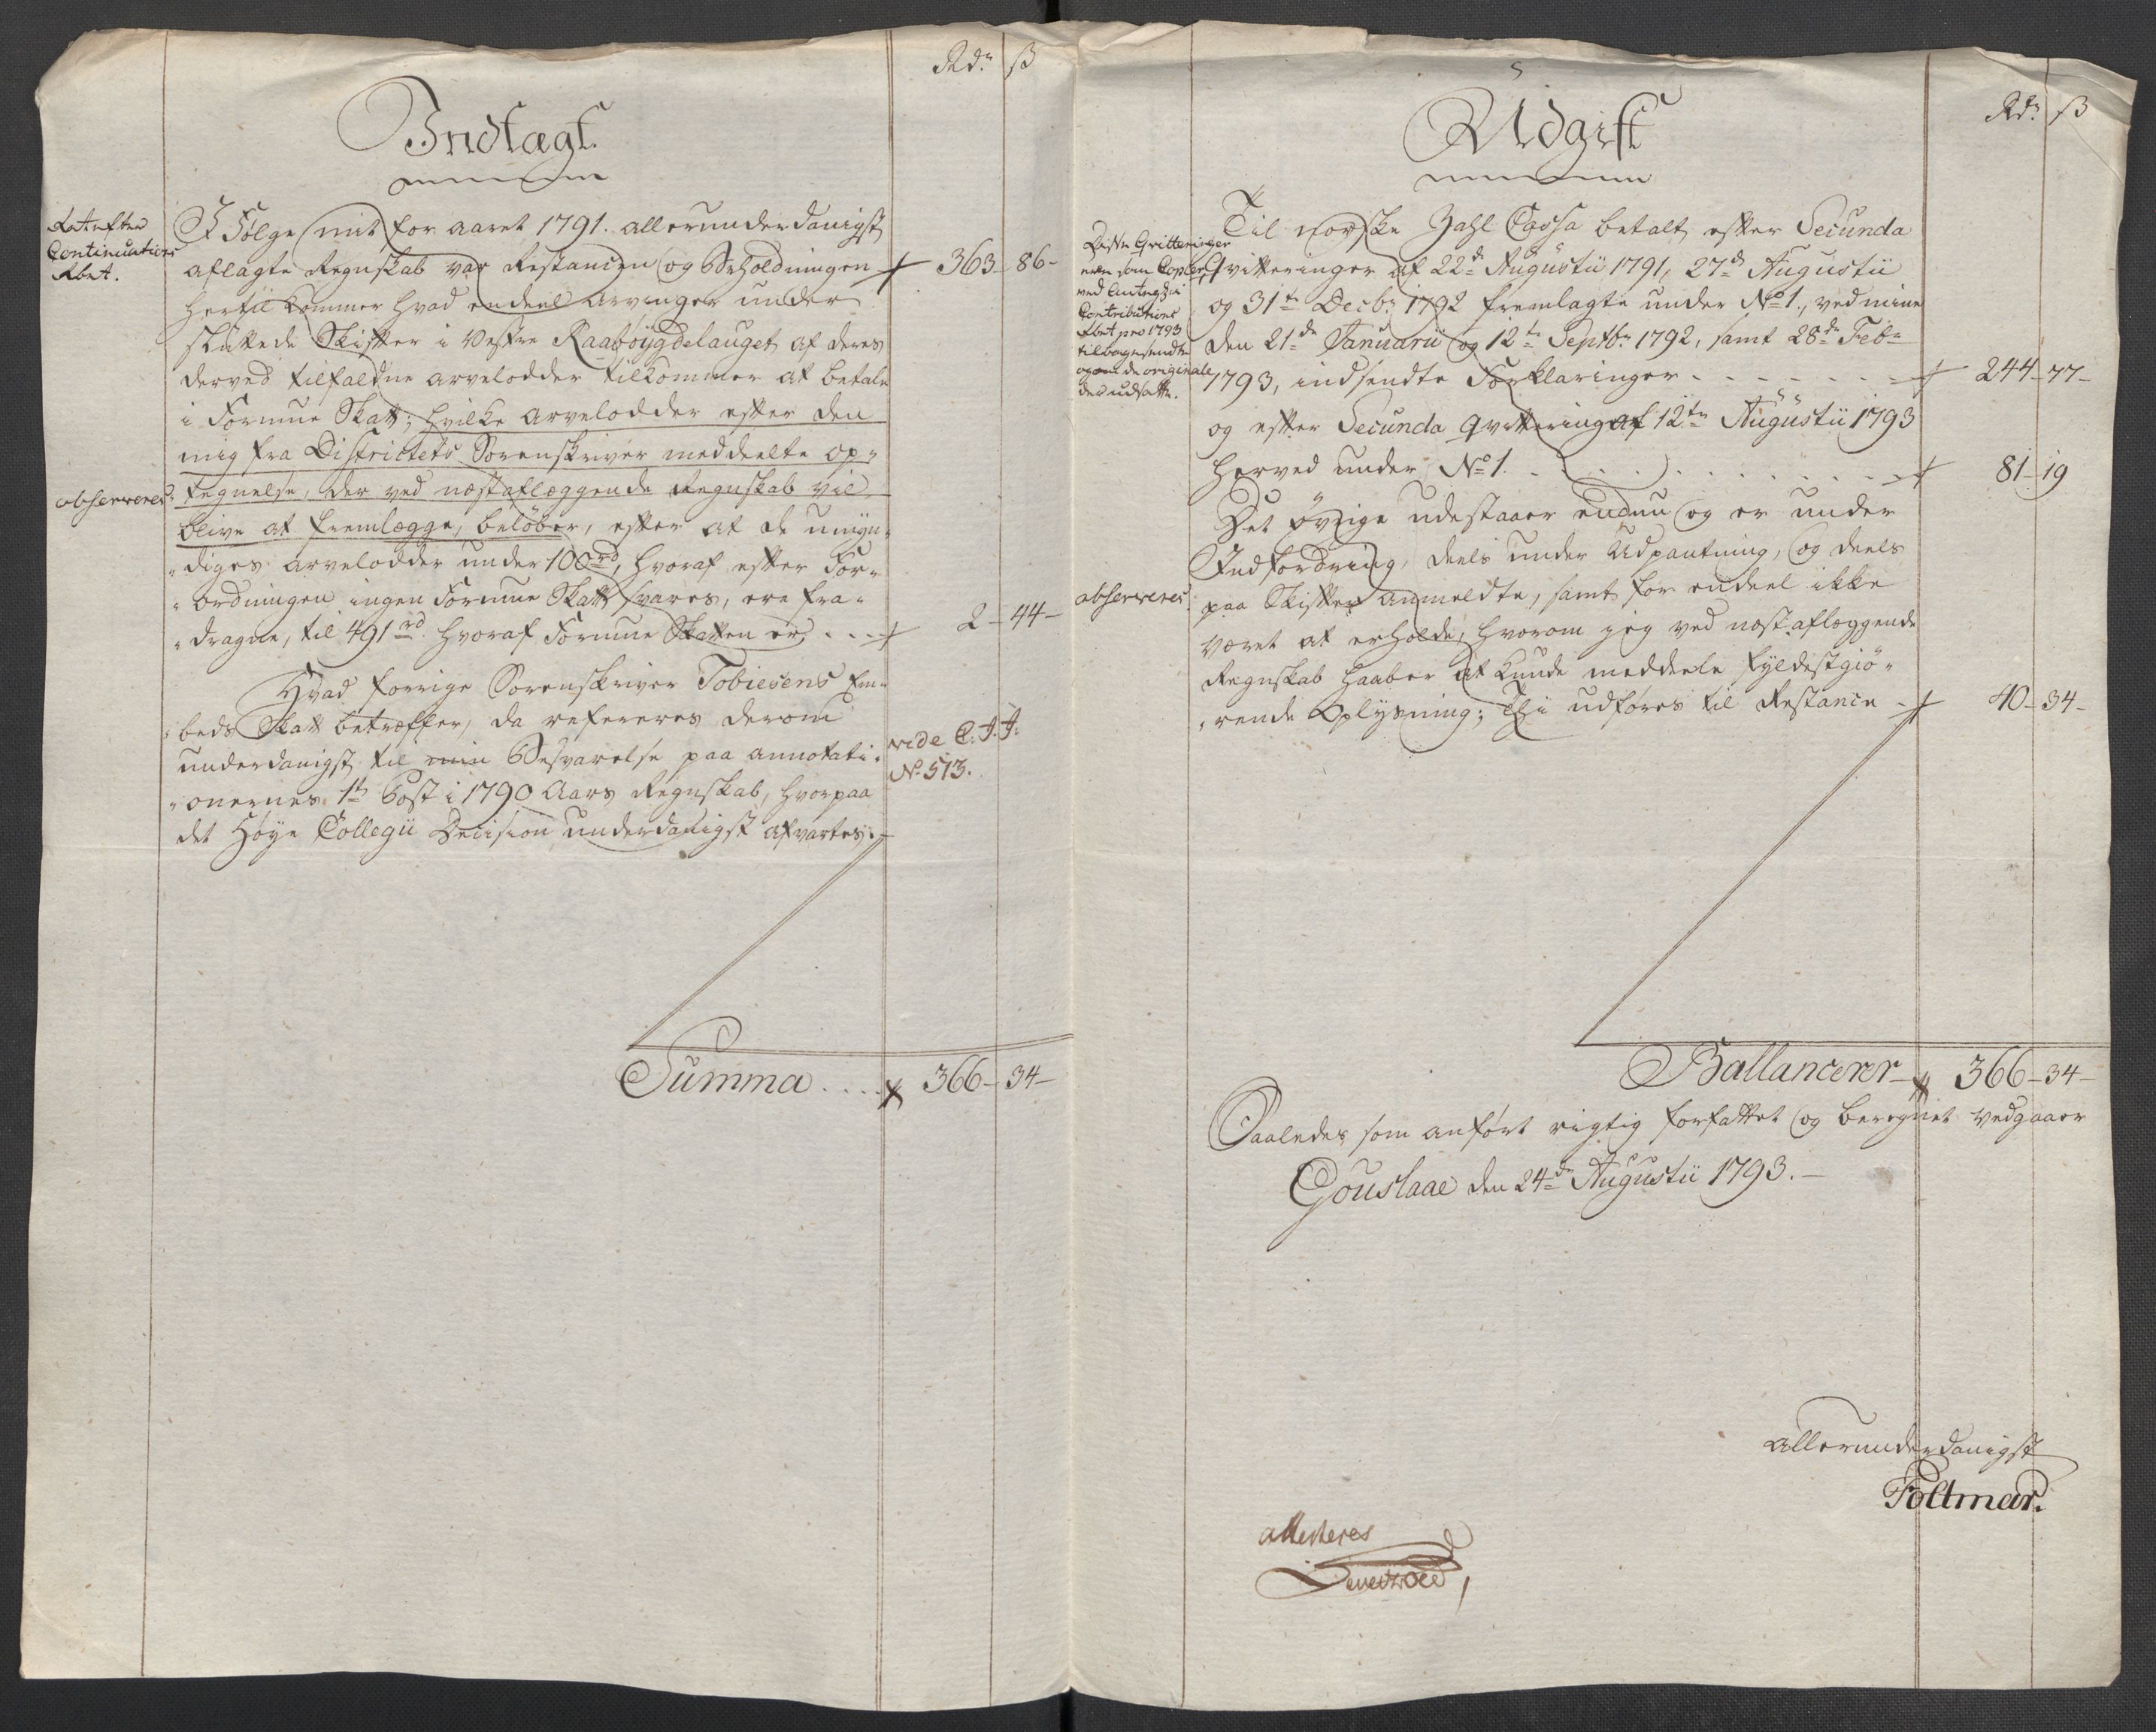 Rdr ß
Indtægt.
Ret efter
Continuations
Rbet.
I Følge mit for aaret 1791. allerunderdanigst
aflagte Regnskab var Restancen og Beholdningen 363 - 86 -
hertil kommer hvad endeel arvinger under
sluttede Skifter i Vestre Raabøygdelauget af deres
derved tilfaldne arvelodder tilkommer at betale
i Formue Skatt; hvilke arvelodder efter den
mig fra Districtets Sorenskriver meddeelte op-
observeres. tegnelse, der ved næstaflæggende Regnskab vil
blive at fremlægge, beløber, efter at de umyn-
diges arvelodder under 100 rd, hvoraf efter For-
ordningen ingen Formue Skatt svares, ere fra-
dragne, til 491 rd. hvoraf Formue Skatten er 2 - 44 -
Hvad forrige Sorenskriver Tobiesens Em-
beds Skatt betræffer, da refereres derom
underdanigst til min Besvarelse paa annotati-
onernes 1te Post i 1790 Aars Regnskab, hvorpaa
det Høye Collegii Decision underdanigst afvartes.
vide C. J. J.
No. 513.
Summa .... 366 - 34 -
Rdr ß
Udgift
Disse Qvitteringer
ere som Copier
ved Antegn: i
Contributions
Rbet pro 1793
tilbagesendte
og om de originale
der udsatte.
Til norske Zahl Cassa betalt efter Secunda
Qvitteringer af 22de Augustii 1791, 27de Augustii
og 31te Decbr 1792 fremlagte under No 1., ved mine
den 21de Januarii og 12te Septbr 1792, samt 28de Feb-
1793, indsendte Forklaringer - - - - - - 244 - 77 -
og efter Secunda Qvittering af 12te Augustii 1793
herved under No 1. . . . . . . . . 81 - 19
Det øvrige udestaaer endnu og er under
Indfordring, deels under Udpantning, og deels
observeres. paa Skifter anmeldte, samt for endeel ikke
været at erholde, hvorom jeg ved næstaflæggende
Regnskab haaber at kunde meddeele fyldestgiø-
rende Oplysning; Thi udføres til Restance 40 - 34 -
Ballancerer 366 - 34 -
Saaledes som anført rigtig forfattet og beregnet vedgaaer
Gouslaae den 24de Augustii 1793. -
allerunderdanigst
Foltmar.
attesteres